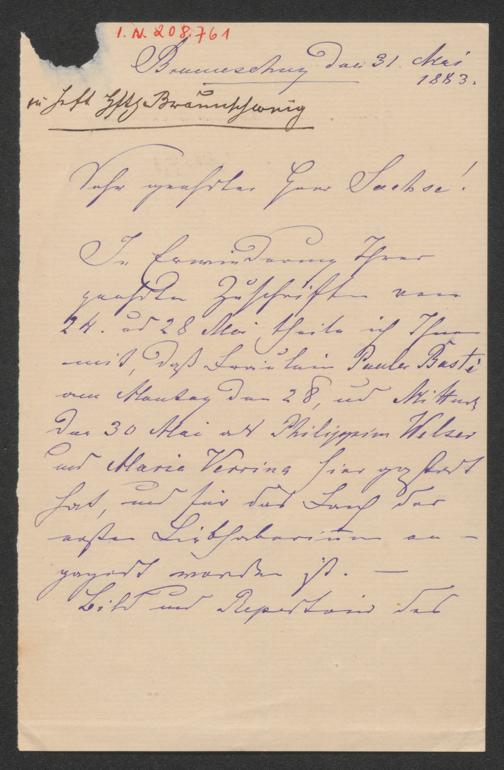 I. N. 208.761
Braunschweig den 31. Mai
1883.
Hft Braunschweig
Sehr geehrter Herr Sachse!
In Erwiederung Ihrer
geehrten Zuschriften vom
24. und 28 Mai theile ich Ihnen
mit, daß Fräulein Paula Basté
am Montag den 28, und Mittwoch
den 30 Mai als Philippine Welser
und Maria Verrina hier gastirt
hat, und für das Fach der
ersten Liebhaberinnen en-
gagirt worden ist. —
Bild und Repertoir des